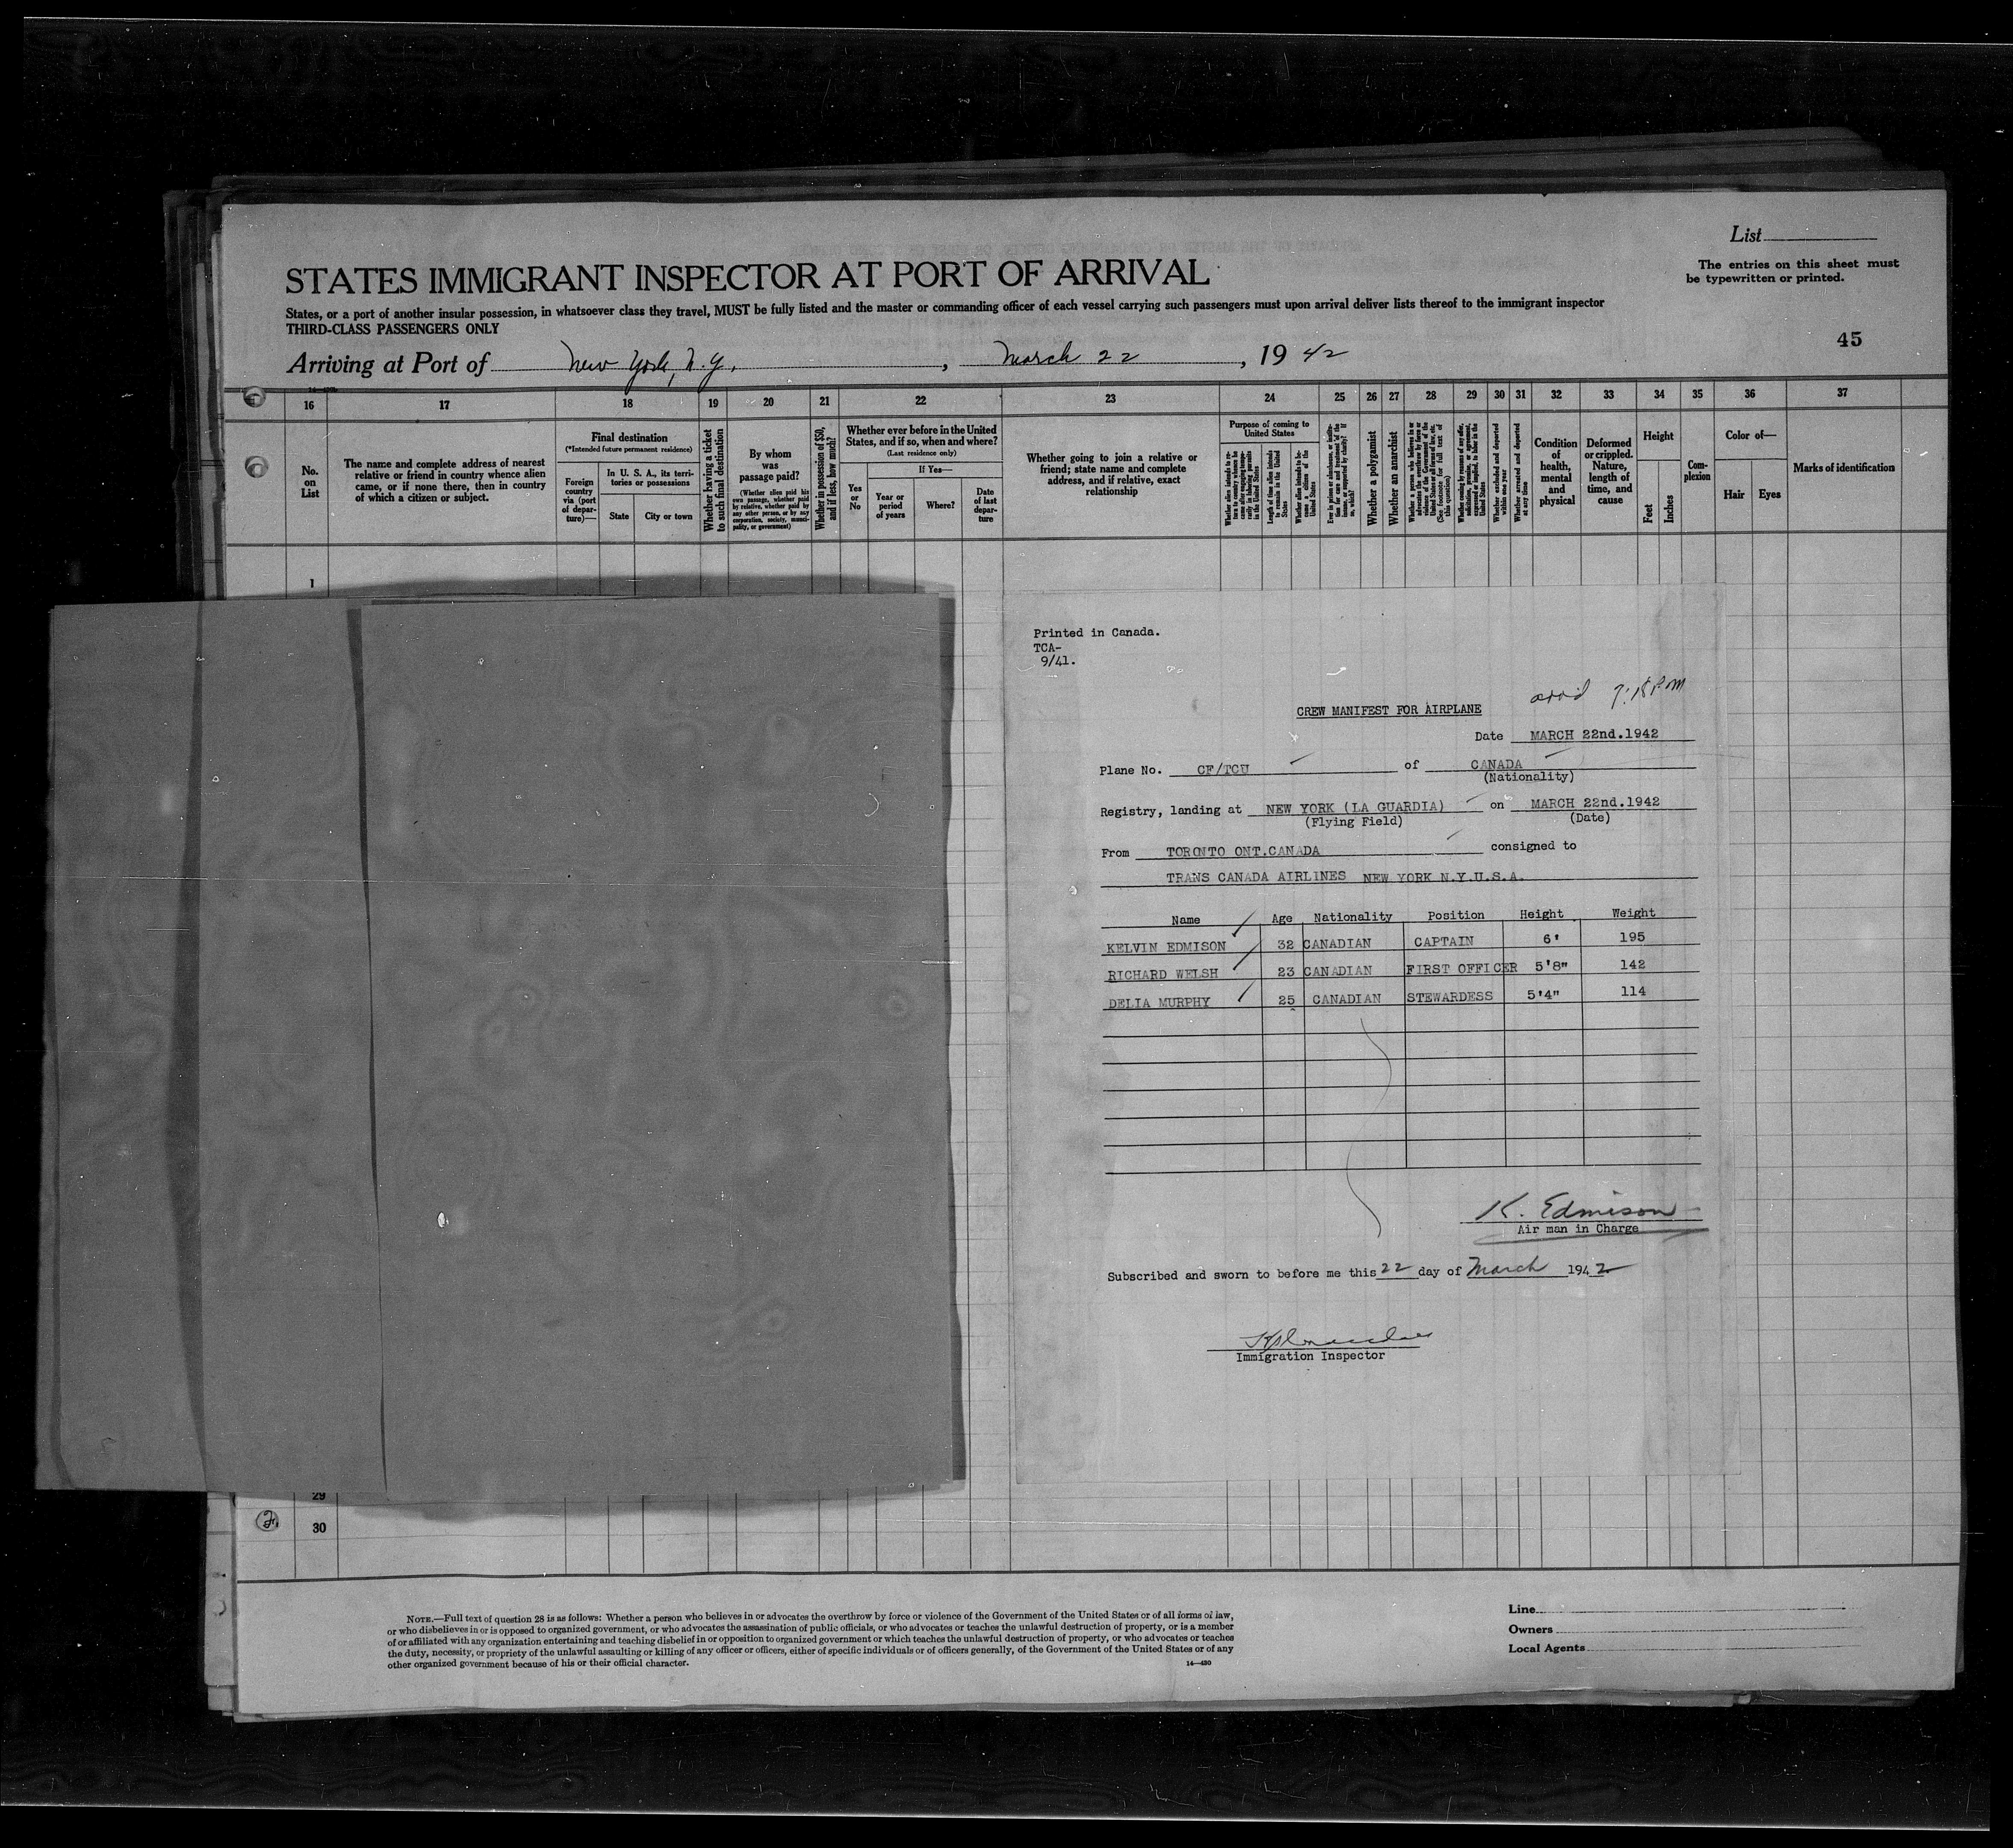 List
The entries on this sheet must
be typewritten or printed.
STATES IMMIGRANT INSPECTOR AT PORT OF ARRIVAL
States, or a port of another insular possession, in whatsoever class they travel, MUST be fully listed and the master or commanding officer of each vessel carrying such passengers must upon arrival deliver lists thereof to the immigrant inspector
THIRD-CLASS PASSENGERS ONLY
45
Arriving at Port of New York, N.Y., March 22, 1942
16 17 18 19 20 21 22 23 24 25 26 27 28 29 30 31 32 33 34 35 36 37
No. on List
The name and complete address of nearest
relative or friend in country whence alien
came, or if none there, then in country
of which a citizen or subject.
Final destination
(*Intended future permanent residence)
Foreign
country
via (port
of depar-
ture)—
In U. S. A., its terri-
tories or possessions
State
City or town
Whether having a ticket
to such final destination
By whom
was
passage paid?
(Whether alien paid his
own passage, whether paid
by relative, whether paid by
any other person, or by any
corporation, society, munici-
pality, or government)
Whether in possession of $50,
and if less, how much?
Whether ever before in the United
States, and if so, when and where?
(Last residence only)
Yes
or
No
If Yes—
Year or
period
of years
Where?
Date
of last
depar-
ture
Whether going to join a relative or
friend; state name and complete
address, and if relative, exact
relationship
Purpose of coming to
United States
Length of time alien intends
to remain in the United
States
Whether alien intends to be-
come a citizen of the
United States
Whether a polygamist
Whether an anarchist
Whether excluded and deported
within one year
Whether arrested and deported
at any time
Condition
of
health,
mental
and
physical
Deformed
or crippled.
Nature,
length of
time, and
cause
Height
Feet
Inches
Com-
plexion
Color of—
Hair
Eyes
Marks of identification
1
Printed in Canada.
TCA-
9/41.
CREW MANIFEST FOR AIRPLANE
Date MARCH 22nd.1942
Plane No. CF/TCU of CANADA
(Nationality)
Registry, landing at NEW YORK (LA GUARDIA) on MARCH 22nd.1942
(Flying Field) (Date)
From TORONTO ONT.CANADA consigned to
TRANS CANADA AIRLINES NEW YORK N.Y.U.S.A.
Name Age Nationality Position Height Weight
KELVIN EDMISON 32 CANADIAN CAPTAIN 6' 195
RICHARD WELSH 23 CANADIAN FIRST OFFICER 5'8" 142
DELIA MURPHY 25 CANADIAN STEWARDESS 5'4" 114
K. Edmison
Air man in Charge
Subscribed and sworn to before me this 22 day of March 1942
Immigration Inspector
29
30
NOTE.—Full text of question 28 is as follows: Whether a person who believes in or advocates the overthrow by force or violence of the Government of the United States or of all forms of law,
or who disbelieves in or is opposed to organized government, or who advocates the assassination of public officials, or who advocates or teaches the unlawful destruction of property, or is a member
of or affiliated with any organization entertaining and teaching disbelief in or opposition to organized government or which teaches the unlawful destruction of property, or who advocates or teaches
the duty, necessity, or propriety of the unlawful assaulting or killing of any officer or officers, either of specific individuals or of officers generally, of the Government of the United States or of any
other organized government because of his or their official character.
14—430
Line
Owners
Local Agents